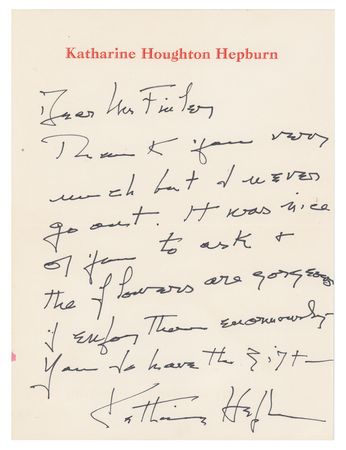 Katharine Houghton Hepburn
Dear Mr Finley
Thank you very
much but I never
go out. It was nice
of you to ask +
the flowers are gorgeous
I enjoy them enormously -
You do have the gift -
Katharine Hepburn